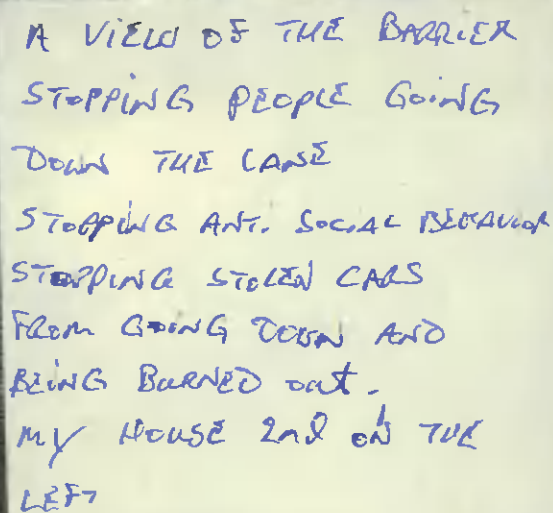 A VIEW OF THE BARRIER
STOPPING PEOPLE GOING
DOWN THE LANE
STOPPING ANT. SOCIAL BEHAVIOR
STOPPING STOLEN CARS
FROM GOING DOWN AND
BEING BURNED out.
MY HOUSE 2nd ON THE
LEFT